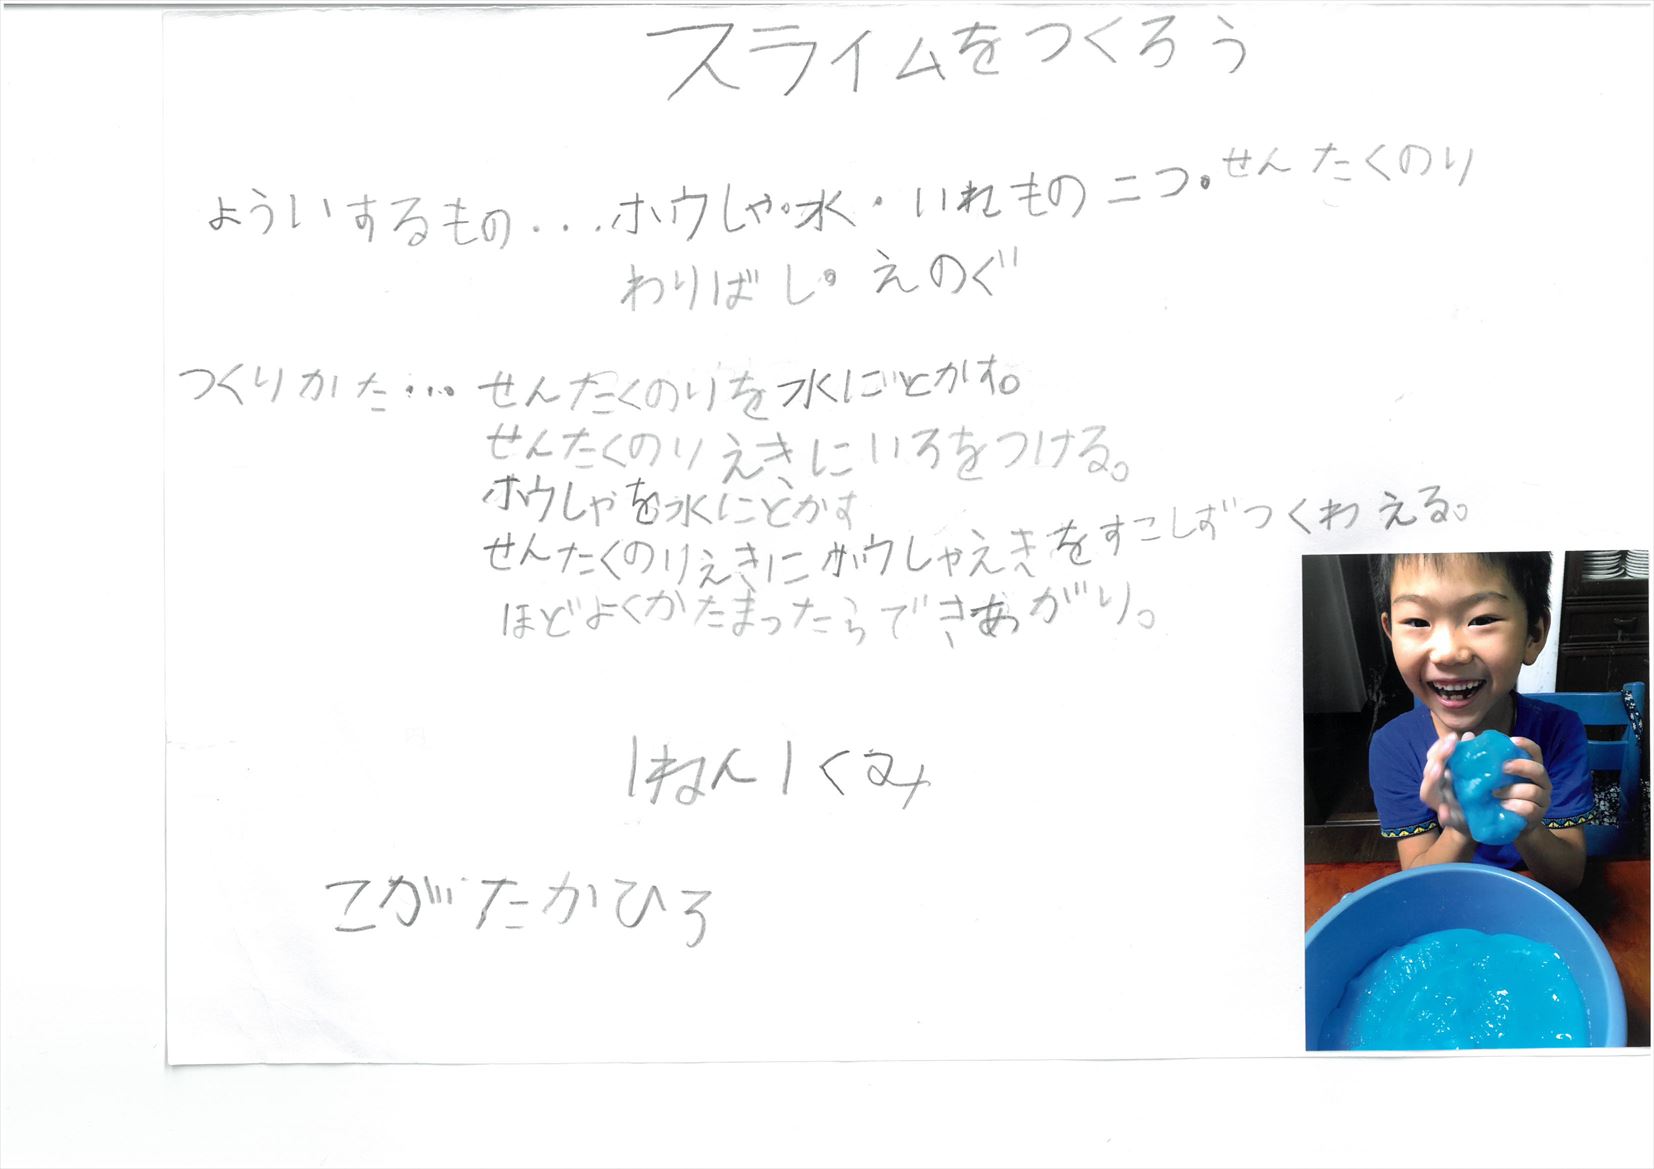 スライムをつくろう
よういするもの...ホウしゃ・水・いれもの二つ・せんたくのり
わりばし・えのぐ
つくりかた...せんたくのりを水にとかす。
せんたくのりえきにいろをつける。
ホウしゃを水にとかす
せんたくのりえきにホウしゃえきをすこしずつくわえる。
ほどよくかたまったらできあがり。
1ねん1くみ
こがたかひろ